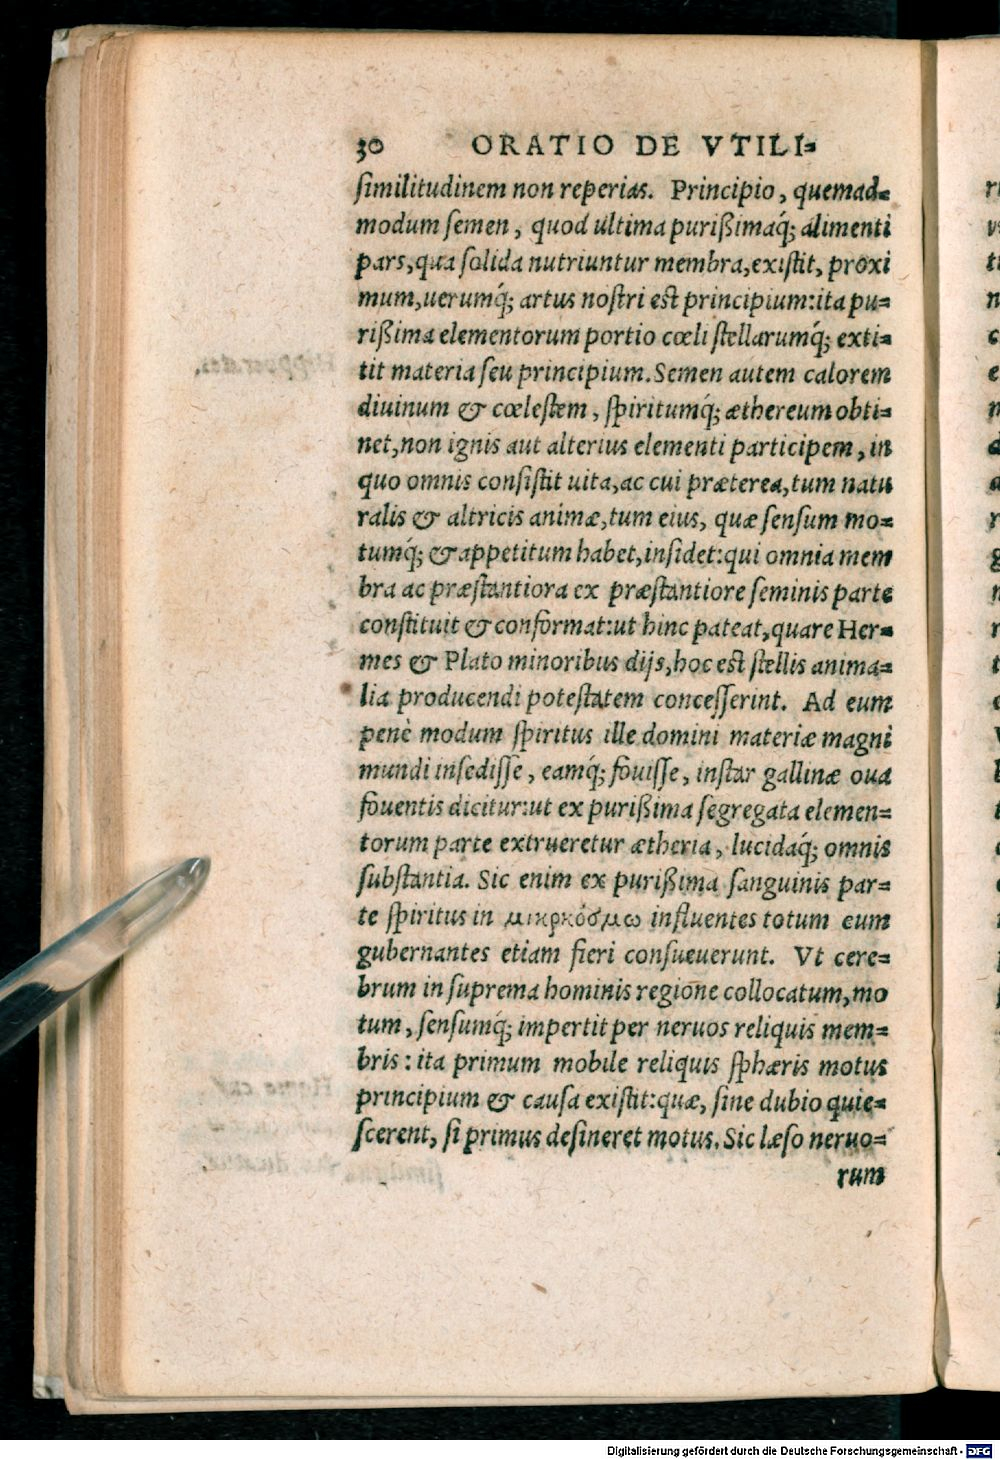 30 ORATIO DE VTILI⸗
ſimilitudinem non reperias. Principio, quemad⸗
modum ſemen, quod ultima purißimaq́; alimenti
pars, qua ſolida nutriuntur membra, exiſtit, proxi
mum, uerumq́; artus noſtri est principium: ita pu⸗
rißima elementorum portio cœli ſtellarumq́; exti⸗
tit materia ſeu principium. Semen autem calorem
diuinum & cœleſtem, ſpiritumq́; æthereum obti⸗
net, non ignis aut alterius elementi participem, in
quo omnis conſiſtit uita, ac cui præterea, tum natu
ralis & altricis animæ, tum eius, quæ ſenſum mo⸗
tumq́; & appetitum habet, inſidet: qui omnia mem
bra ac præſtantiora ex præſtantiore ſeminis parte
conſtituit & conformat: ut hinc pateat, quare Her⸗
mes & Plato minoribus dijs, hoc est ſtellis anima⸗
lia producendi poteſtatem conceſſerint. Ad eum
penè modum ſpiritus ille domini materiæ magni
mundi inſediſſe, eamq́; fouiſſe, inſtar gallinæ oua
fouentis dicitur: ut ex purißima ſegregata elemen⸗
torum parte extrueretur ætheria, lucidaq́; omnis
ſubſtantia. Sic enim ex purißima ſanguinis par⸗
te ſpiritus in μικρκόσμω influentes totum eum
gubernantes etiam fieri conſueuerunt. Vt cere⸗
brum in ſuprema hominis regione collocatum, mo
tum, ſenſumq́; impertit per neruos reliquis mem⸗
bris: ita primum mobile reliquis ſphæris motus
principium & cauſa exiſtit: quæ, ſine dubio quie⸗
ſcerent, ſi primus deſineret motus. Sic læſo neruo⸗
rum
Digitalisierung gefördert durch die Deutsche Forschungsgemeinschaft - DFG